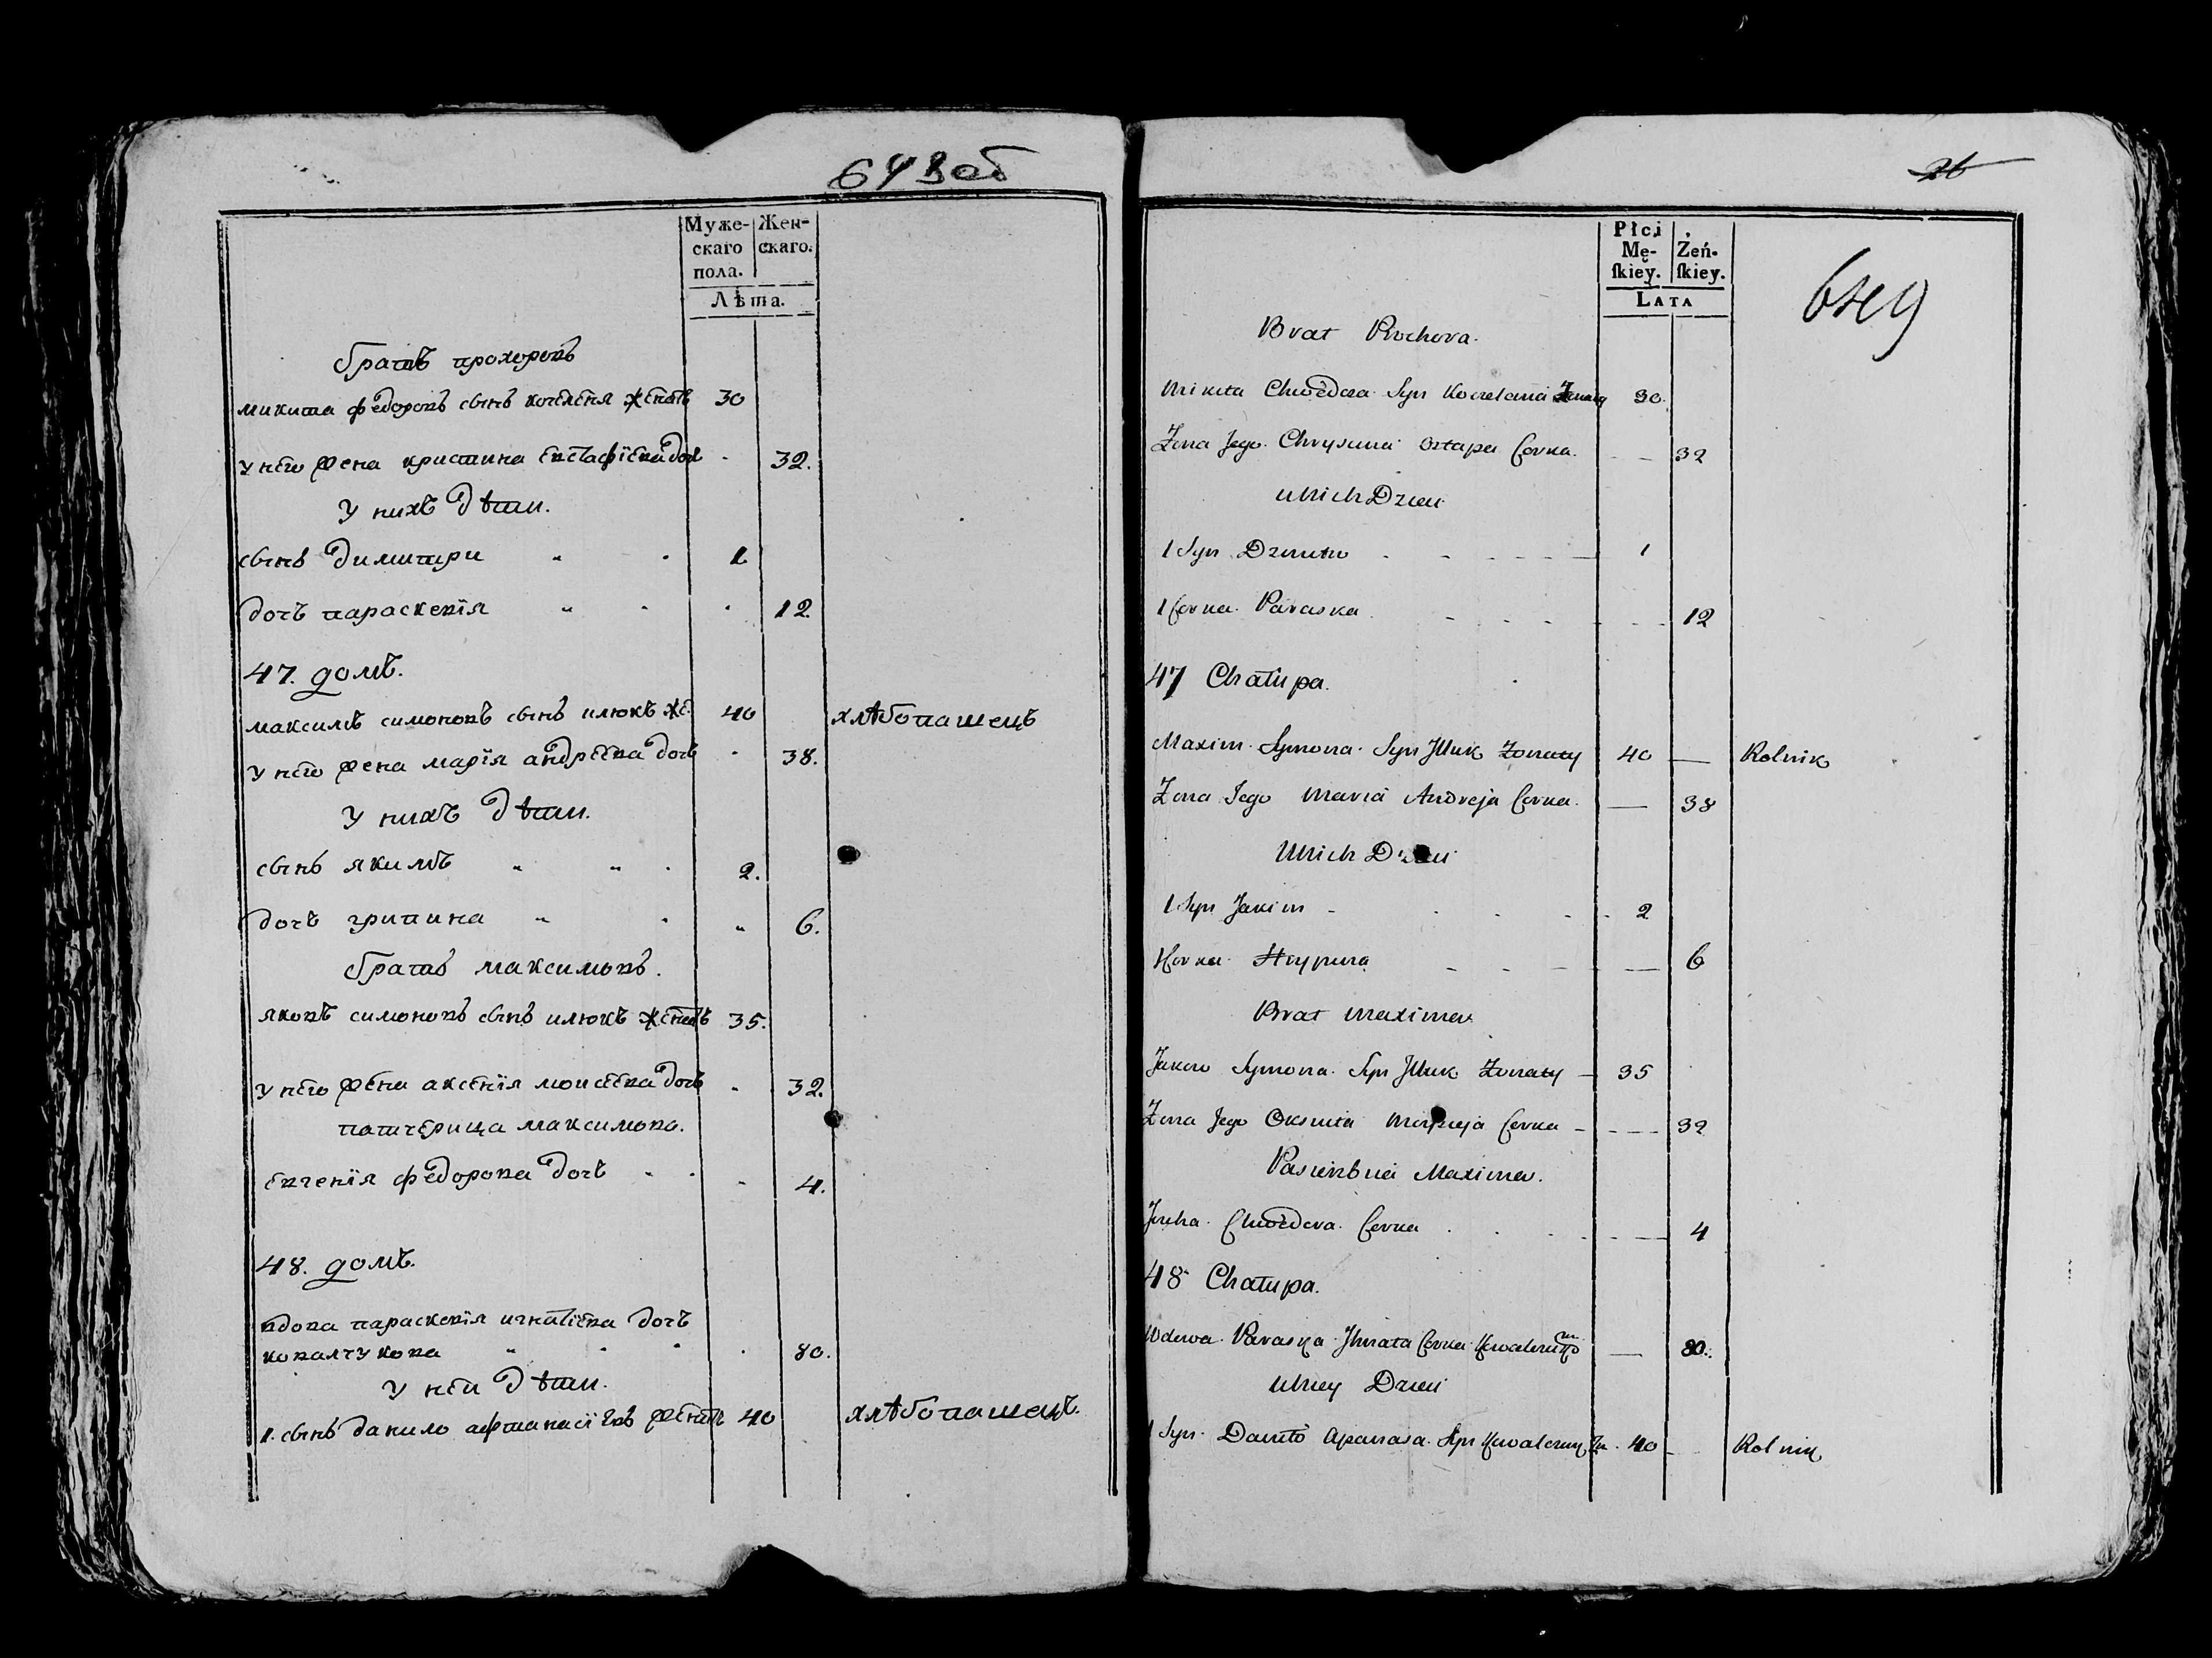 643об
Муже-
скаго
пола.
Жен-
скаго.
Лѣта.
братъ прохоровъ
микита федоровъ сынъ женатъ 30
у него жена кристина евстафіева доч - 32.
У нихъ дѣти.
сынъ димитри " . 1
дочъ параскевія " . . 12.
47. домъ.
максимъ симоновъ сынъ илюкъ же. 40 хлѣбопашецъ
у него жена марія андрѣева дочъ . 38.
У нихъ дѣти.
сынъ якимъ " " . 2.
дочъ грипина " . " 6.
братъ максимовъ.
яковъ симоновъ сынъ илюкъ женатъ 35.
у него жена аксенія моисѣева дочъ . 32.
патчерица максимова.
евгенія федорова дочъ . . . 4.
48. домъ.
вдова параскевія игнатіева дочъ
ковалчукова " . . . 80.
У неи дѣти.
1. сынъ данило афтанасіевъ женатъ 40 хлѣбопашецъ.
26
644
Płci
Mę-
ſkiey.
Żeń-
ſkiey.
LATA
Brat Prochora.
Mikita Chwedora Syn Żonaty 30.
Żona Jego Chrystina Ostapa Corka. - - 32
U Nich Dzieci
1 Syn Dzmitro - - - - - 1
1 Corka Paraska - - - - - 12
47 Chałupa.
Maxim Symona Syn Iluk Żonaty 40 — Rolnik
Żona Jego Maria Andreja Corka. — 38
U Nich Dzieci
1 Syn Jakim - . . . . 2
1 Corka Hrypina - - - — 6
Brat Maxima
Jakow Symona Syn Iluk Żonaty — 35
Żona Jego Oksinia Corka - - - - 32
Pasierbica Maxima.
Chwedora Corka . . . - - — 4
48 Chałupa.
Wdowa Paraska Ihnata Corka — 80.
U Niey Dzieci
1 Syn Daniło Apanasa Syn Kowalczuk Żo. 40 - Rolnik